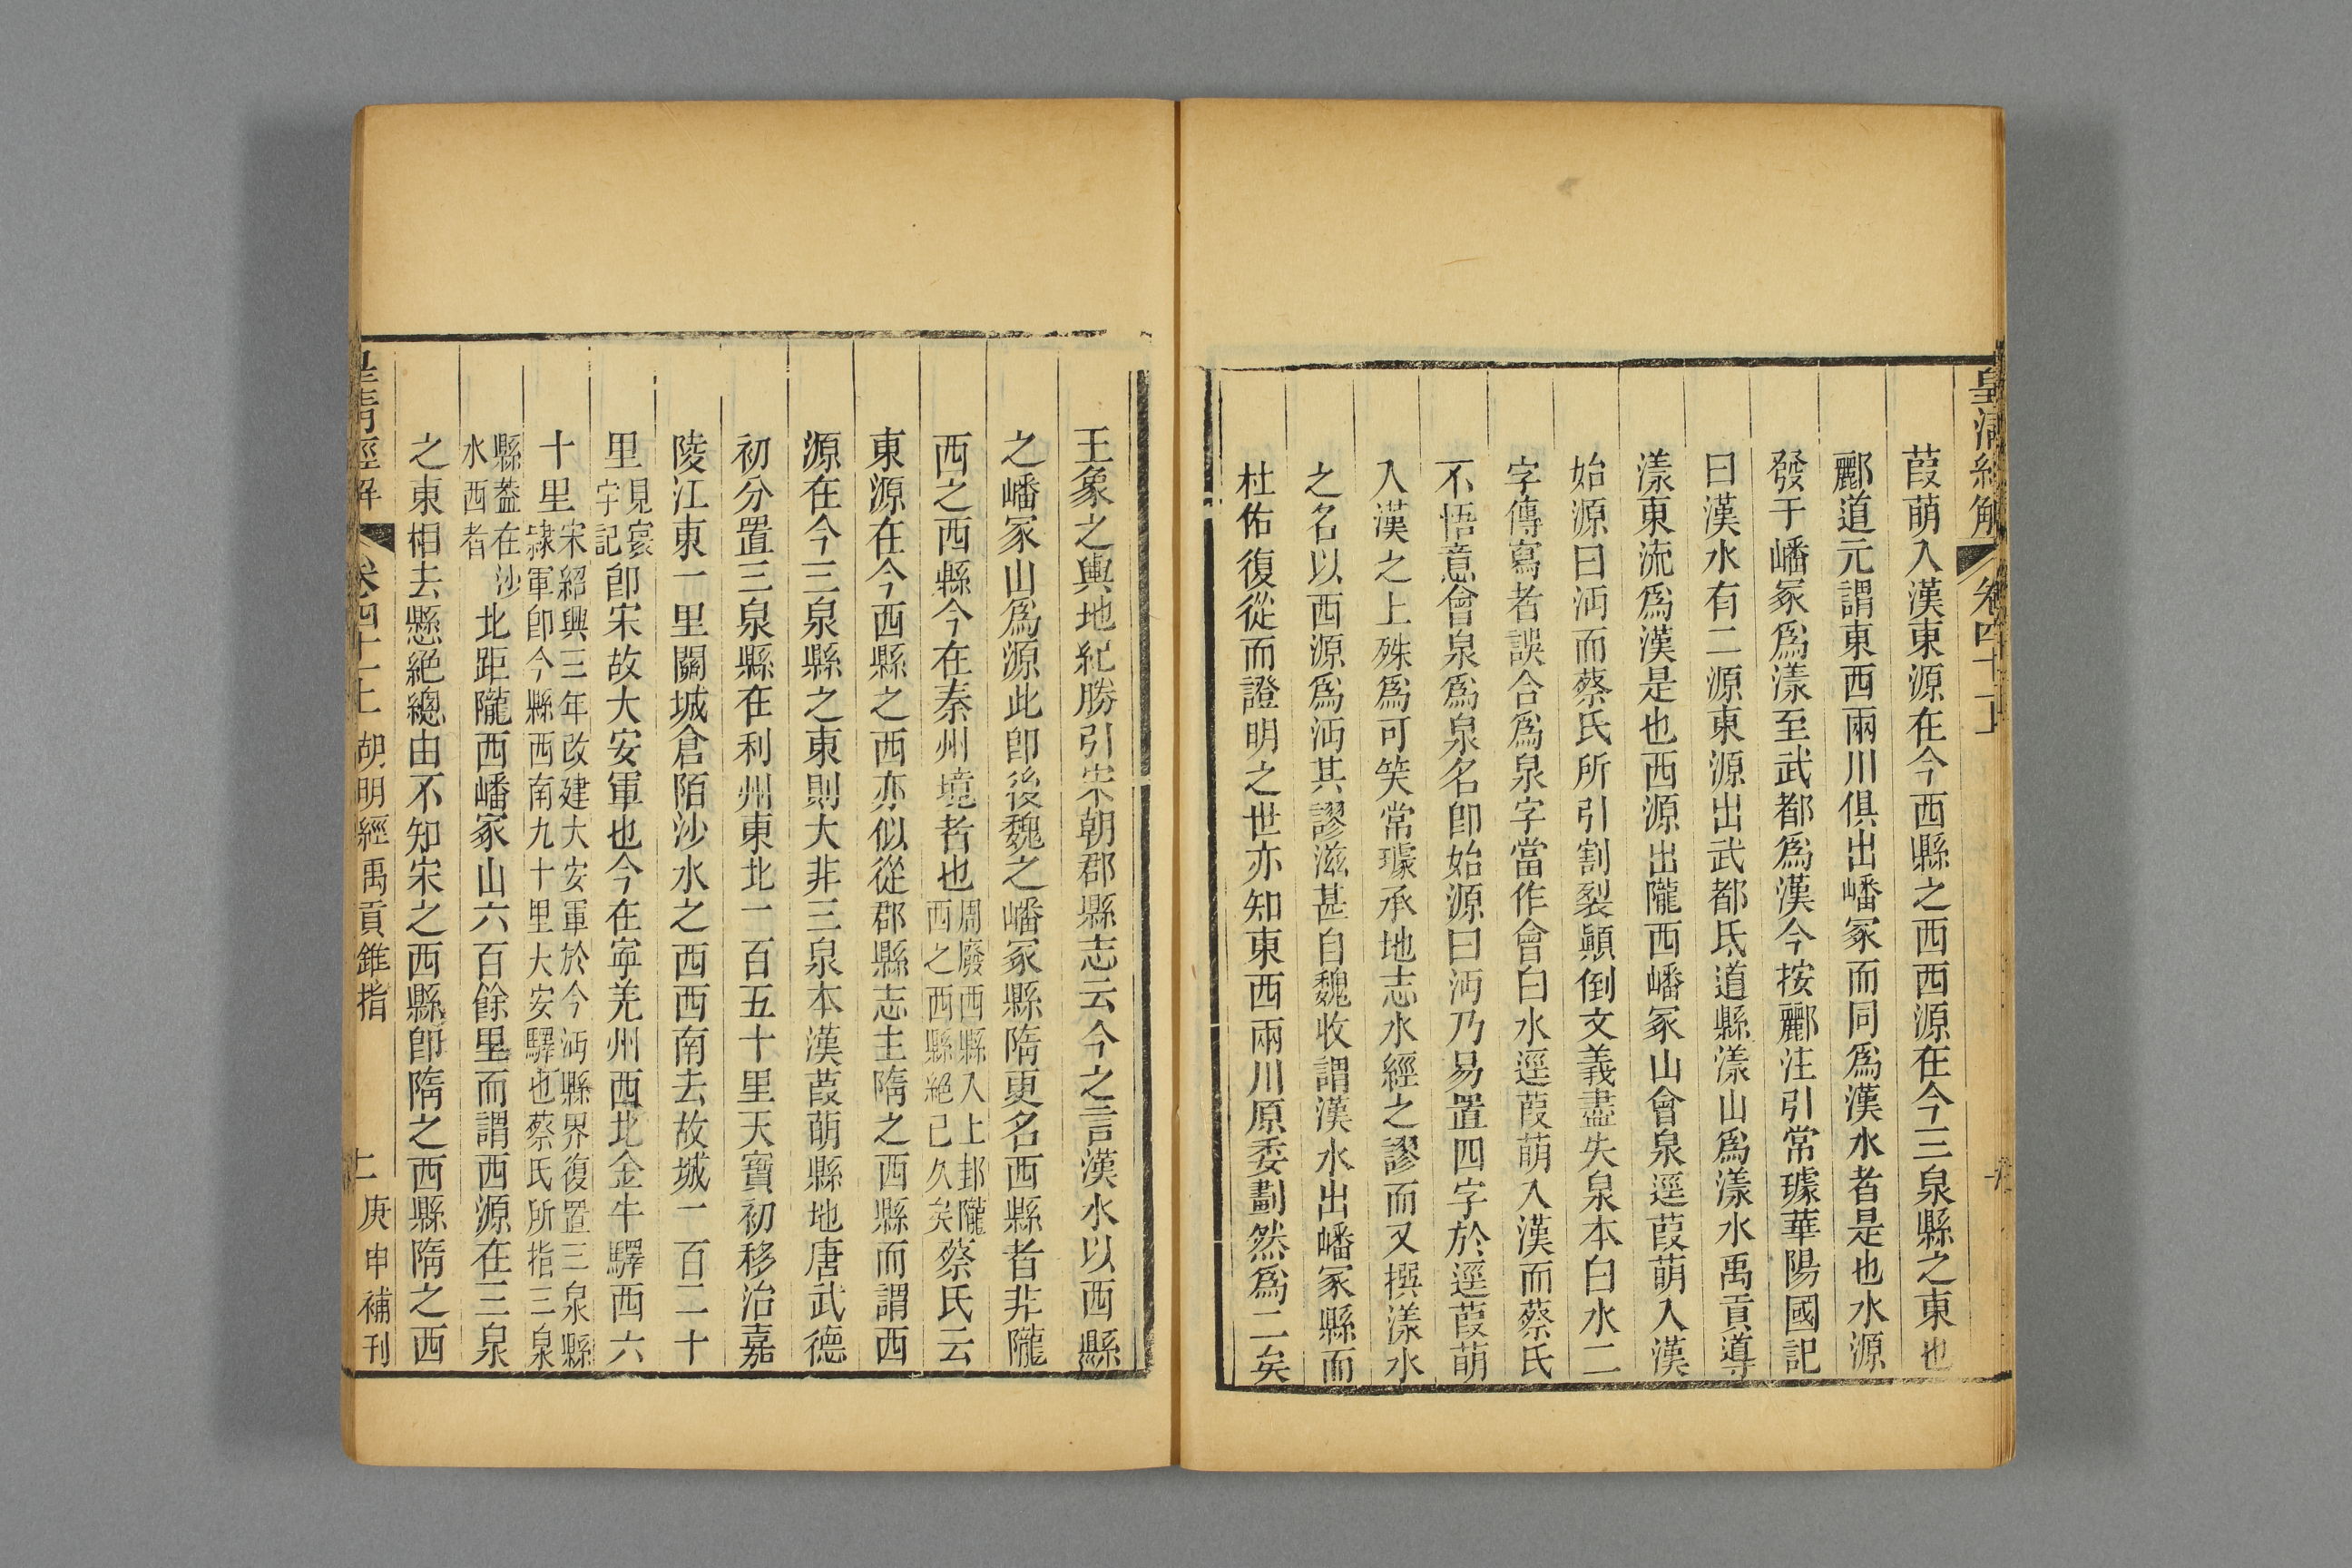 皇清經解 卷四十一上
葭萌入漢東源在今西縣之西西源在今三泉縣之東也
酈道元謂東西兩川俱出嶓冢而同爲漢水者是也水源
發于嶓冢爲漾至武都爲漢今按酈注引常璩華陽國記
曰漢水有二源東源出武都氐道縣漾山爲漾水禹貢導
漾東流爲漢是也西源出隴西嶓冢山會泉逕葭萌入漢
始源曰沔而蔡氏所引割裂顚倒文義盡失泉本白水二
字傳寫者誤合爲泉字當作會白水逕葭萌入漢而蔡氏
不悟意會泉爲泉名卽始源曰沔乃易置四字於逕葭萌
入漢之上殊爲可笑常璩承地志水經之謬而又撰漾水
之名以西源爲沔其謬滋甚自魏收謂漢水出嶓冢縣而
杜佑復從而證明之世亦知東西兩川原委劃然爲二矣
王象之輿地紀勝引宋朝郡縣志云今之言漢水以西縣
之嶓冢山爲源此卽後魏之嶓冢縣隋更名西縣者非隴
西之西縣今在秦州境者也周廢西縣入上邽隴西之西縣絕已久矣蔡氏云
東源在今西縣之西亦似從郡縣志主隋之西縣而謂西
源在今三泉縣之東則大非三泉本漢葭萌縣地唐武德
初分置三泉縣在利州東北一百五十里天寶初移治嘉
陵江東一里關城倉陌沙水之西西南去故城一百二十
里見寰宇記卽宋故大安軍也今在寧羌州西北金牛驛西六
十里宋紹興三年改建大安軍於今沔縣界復置三泉縣隸軍卽今縣西南九十里大安驛也蔡氏所指三泉
縣葢在沙水西者北距隴西嶓冢山六百餘里而謂西源在三泉
之東相去懸絕總由不知宋之西縣卽隋之西縣隋之西
皇清經解 卷四十一上 胡明經禹貢錐指 庚申補刊